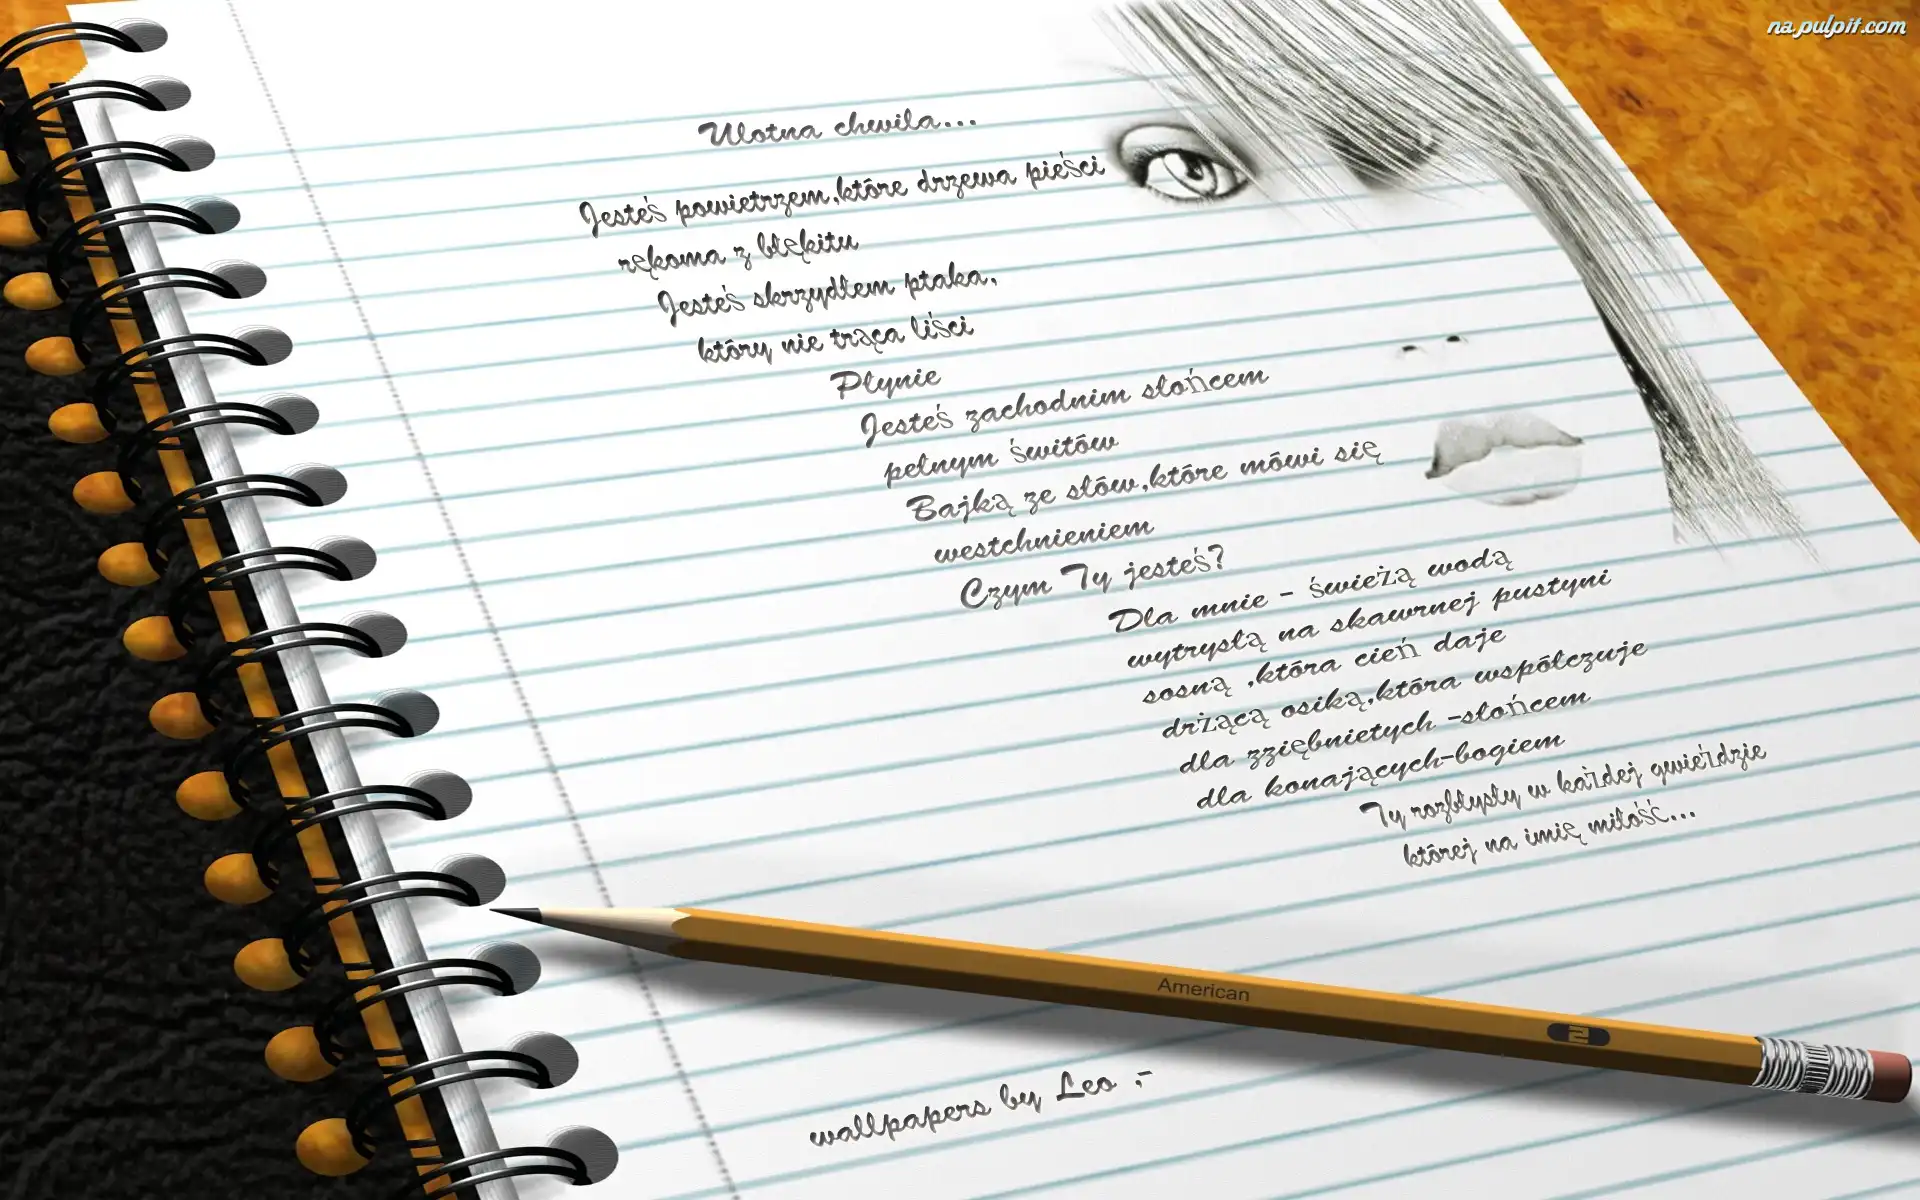 na.pulpit.com
Ulotna chwila...
Jesteś powietrzem,które drzewa pieści
rękoma z błękitu
Jesteś skrzydłem ptaka,
który nie trąca liści
Płynie
Jesteś zachodnim słońcem
pełnym świtów
Bajką ze słów,które mówi się
westchnieniem
Czym Ty jesteś?
Dla mnie - świeżą wodą
wytrysłą na skawrnej pustyni
sosną ,która cień daje
drżącą osiką,która współczuje
dla zziębnietych -słońcem
dla konających-bogiem
Ty rozbłysły w każdej gwieździe
której na imię miłość...
American
2
wallpapers by Leo ;-